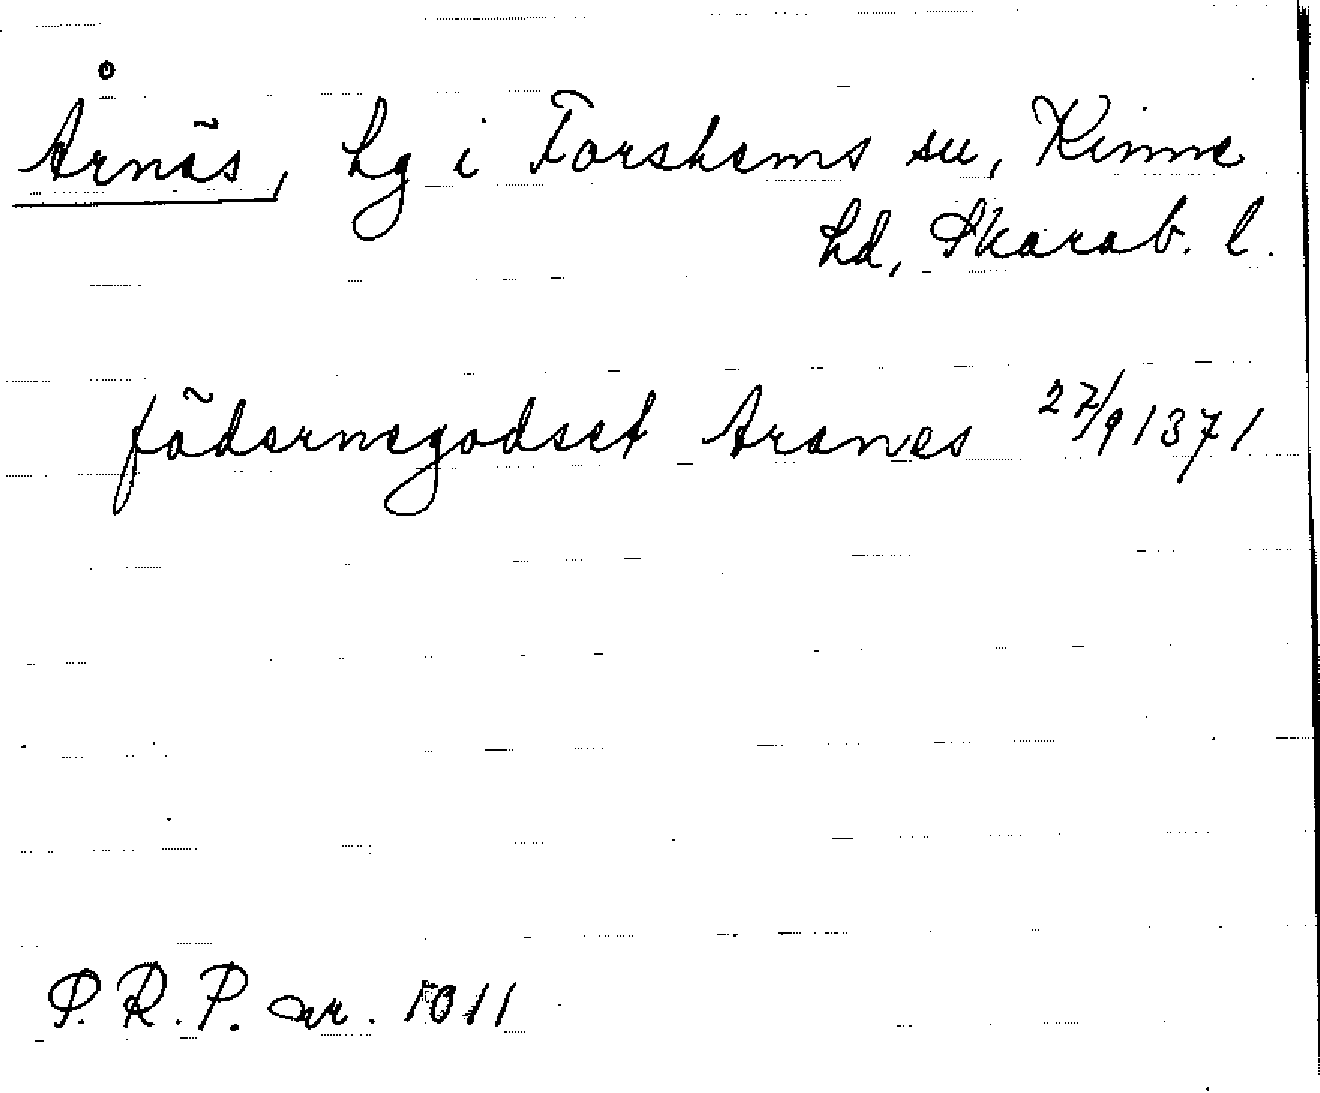 Årnäs, hg i Forshems sn, Kinne
hd, Skarab. l.
fädernegodset Aranes 27/9 1371
P. R. P. nr. 1011